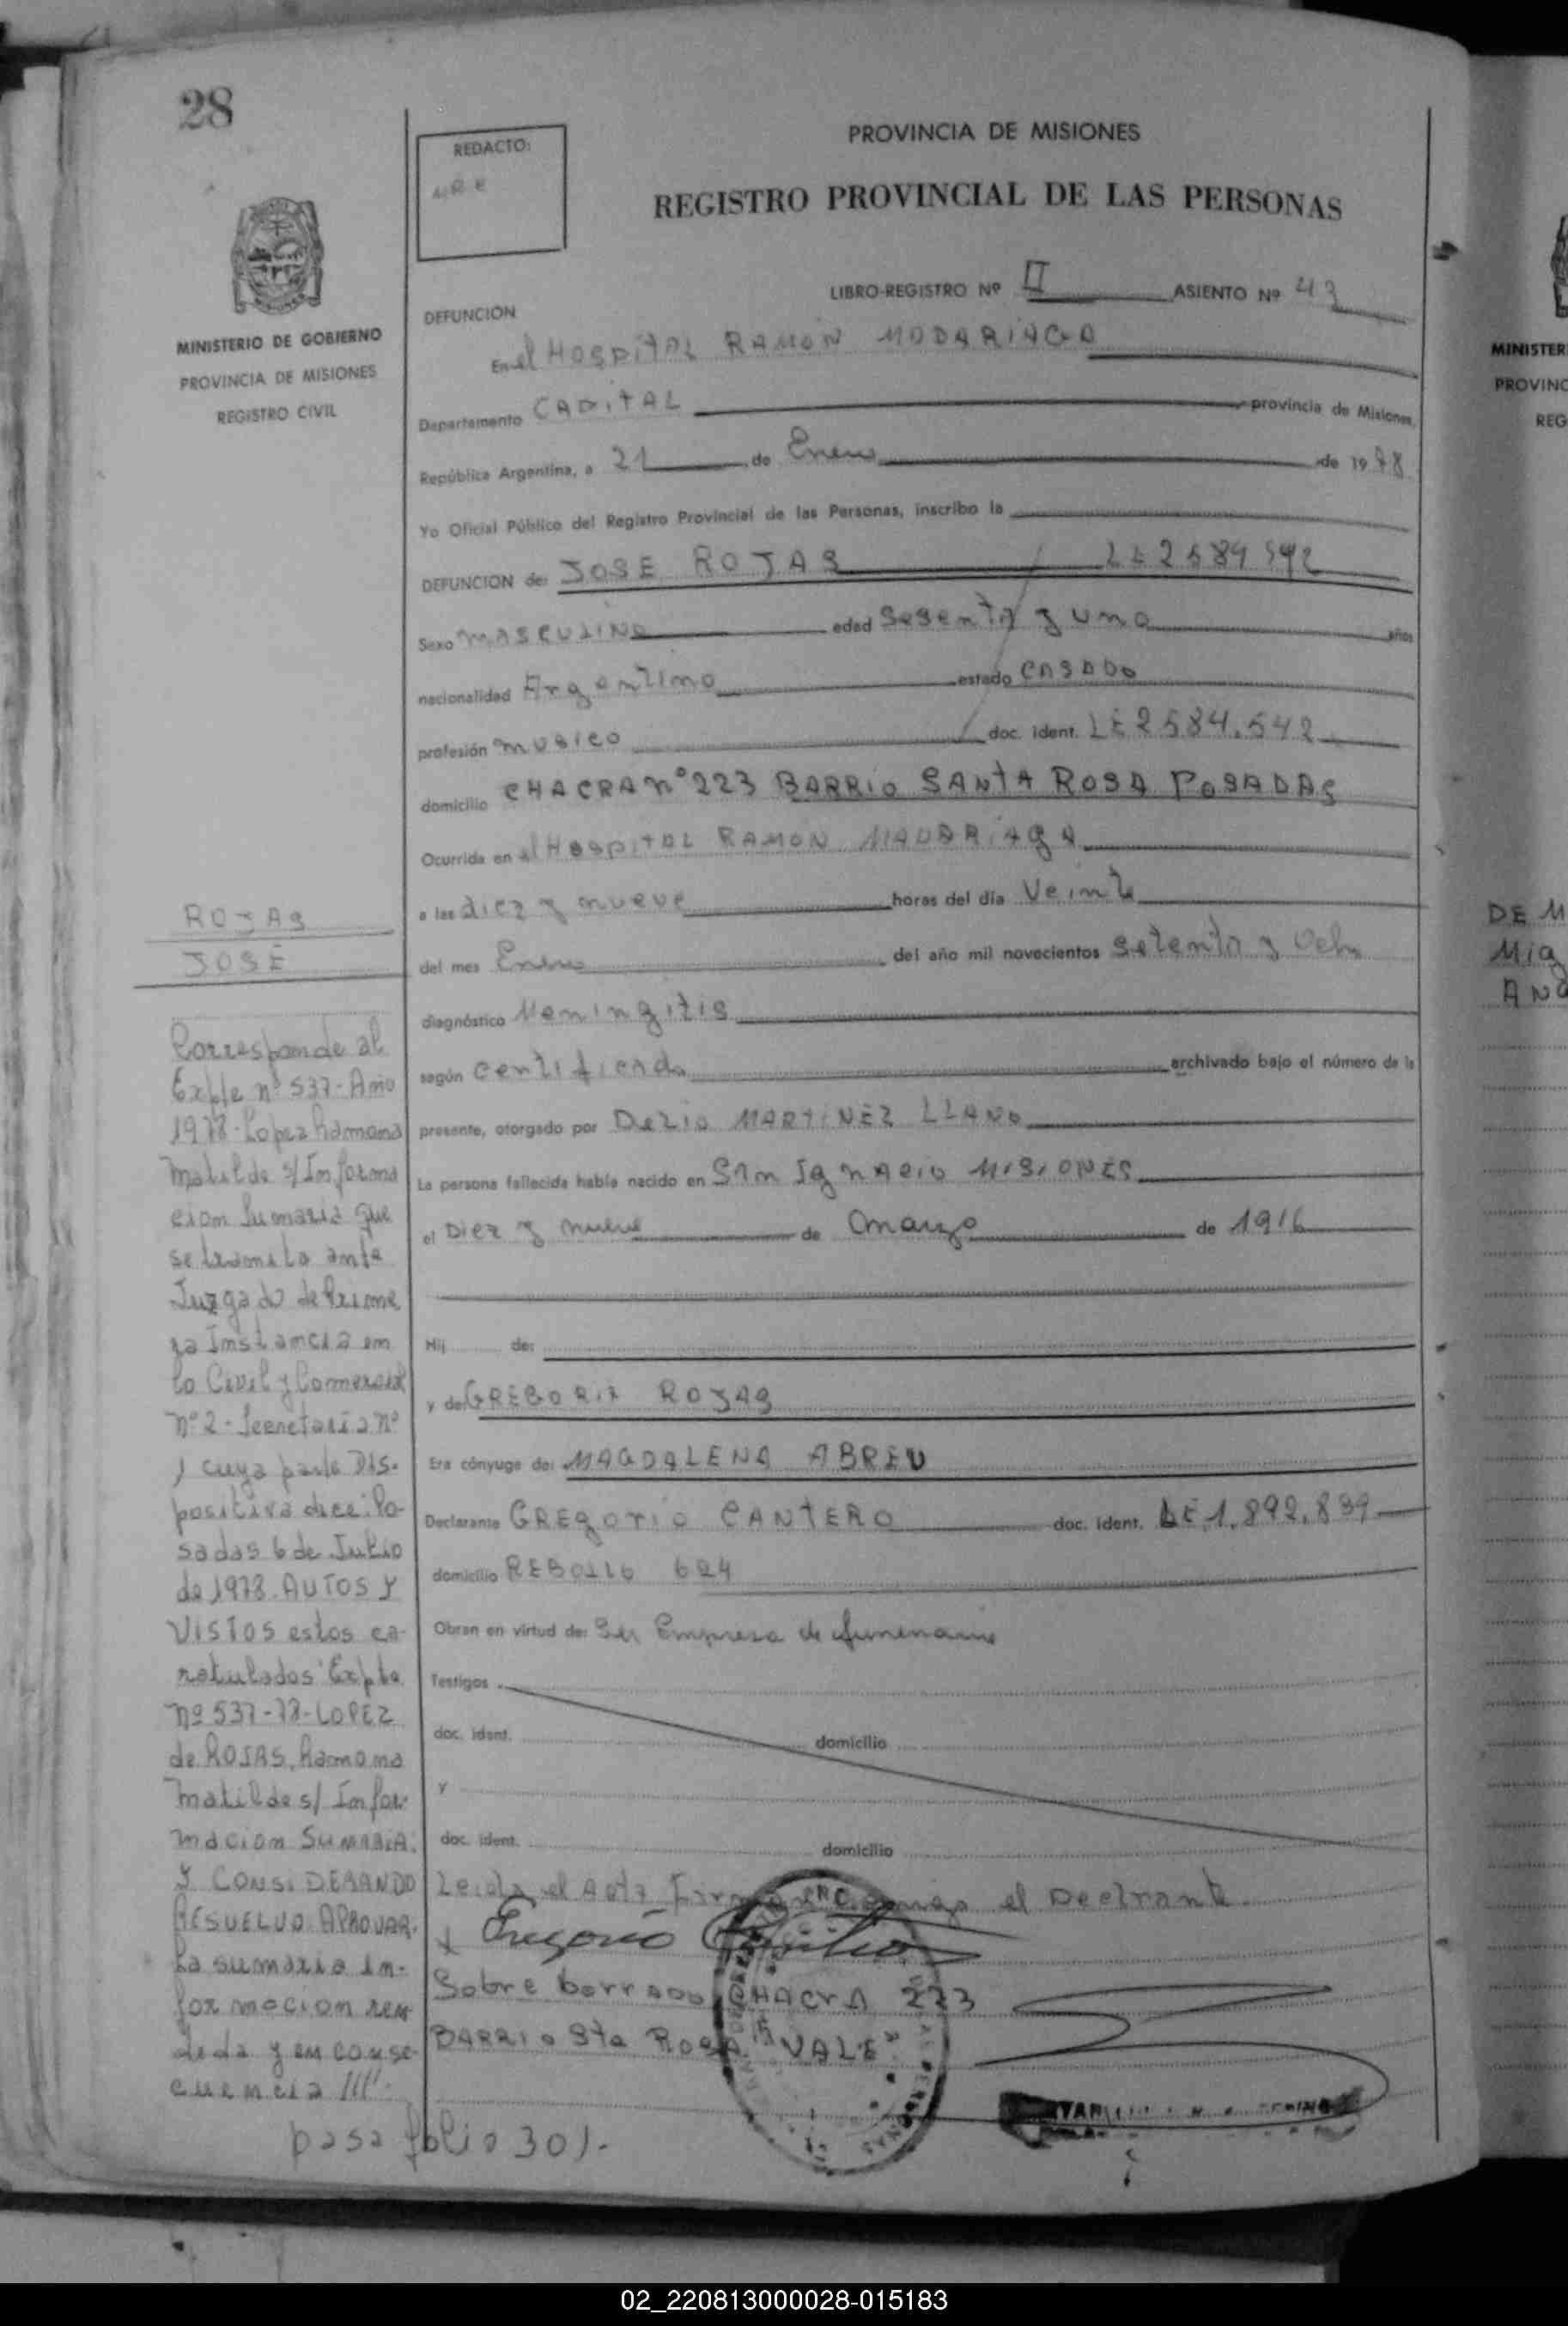 28
REDACTO:
PROVINCIA DE MISIONES
REGISTRO PROVINCIAL DE LAS PERSONAS
MINISTERIO DE GOBIERNO
PROVINCIA DE MISIONES
REGISTRO CIVIL
LIBRO-REGISTRO Nº II ASIENTO Nº 43
DEFUNCION
En el HOSPITAL RAMON MADARIAGA
Departamento CAPITAL provincia de Misiones,
República Argentina, a 21 de Enero de 1978
Yo Oficial Público del Registro Provincial de las Personas, inscribo la
DEFUNCION de: JOSE ROJAS LE 2584542
Sexo MASCULINO edad Sesenta y uno años
nacionalidad Argentino estado CASADO
profesión musico doc. ident. LE 2584.542
domicilio CHACRA nº 223 BARRIO SANTA ROSA POSADAS
Ocurrida en el HOSPITAL RAMON MADARIAgA
a las diez y nueve horas del día Veinte
del mes Enero del año mil novecientos setenta y Ocho
diagnóstico Meningitis
según certificado archivado bajo el número de la
presente, otorgado por Dezio MARTINEZ LLANO
La persona fallecida había nacido en SAn Ignacio MISIONES
el Diez y nueve de marzo de 1916
Hij de:
y de: GREGORIA ROJAS
Era cónyuge de: MAGDALENA ABREU
Declarante GREgorio CANTERO doc. ident. LE.1.892.839
domicilio REBOLLO 624
Obran en virtud de: Ser Empresa de funenario
Testigos
doc. ident. domicilio
y
doc. ident. domicilio
Leida el Acta Firma conmigo el Declrante
Gregorio
Sobre borrado CHACrA 223
BARRIO Sta ROSA "VALE"
ROJAS
JOSE
Corresponde al
Expte nº 537- Año
1978- Lopez Ramona
Matilde s/ Informa
cion Sumaria que
se tramita ante
Juzgado de Prime
ra Instancia en
lo Civil y Comercial
nº 2 - Secretaria nº
1 cuya parte Dis-
positiva dice: Po-
sadas 6 de Julio
de 1978. AUTOS Y
VISTOS estos ca-
ratulados "Expte
nº 537-78-LOPEZ
de ROJAS, Ramona
Matilde s/ Infor
macion SUMARIA.
Y CONSIDERANDO
RESUELVO: APROVAR.
La sumaria in-
formacion ren
dida y en conse-
cuencia ////.
pasa folio 301.-
MINISTER
PROVINC
REG
DE M
Mig
ANG
02_220813000028-015183